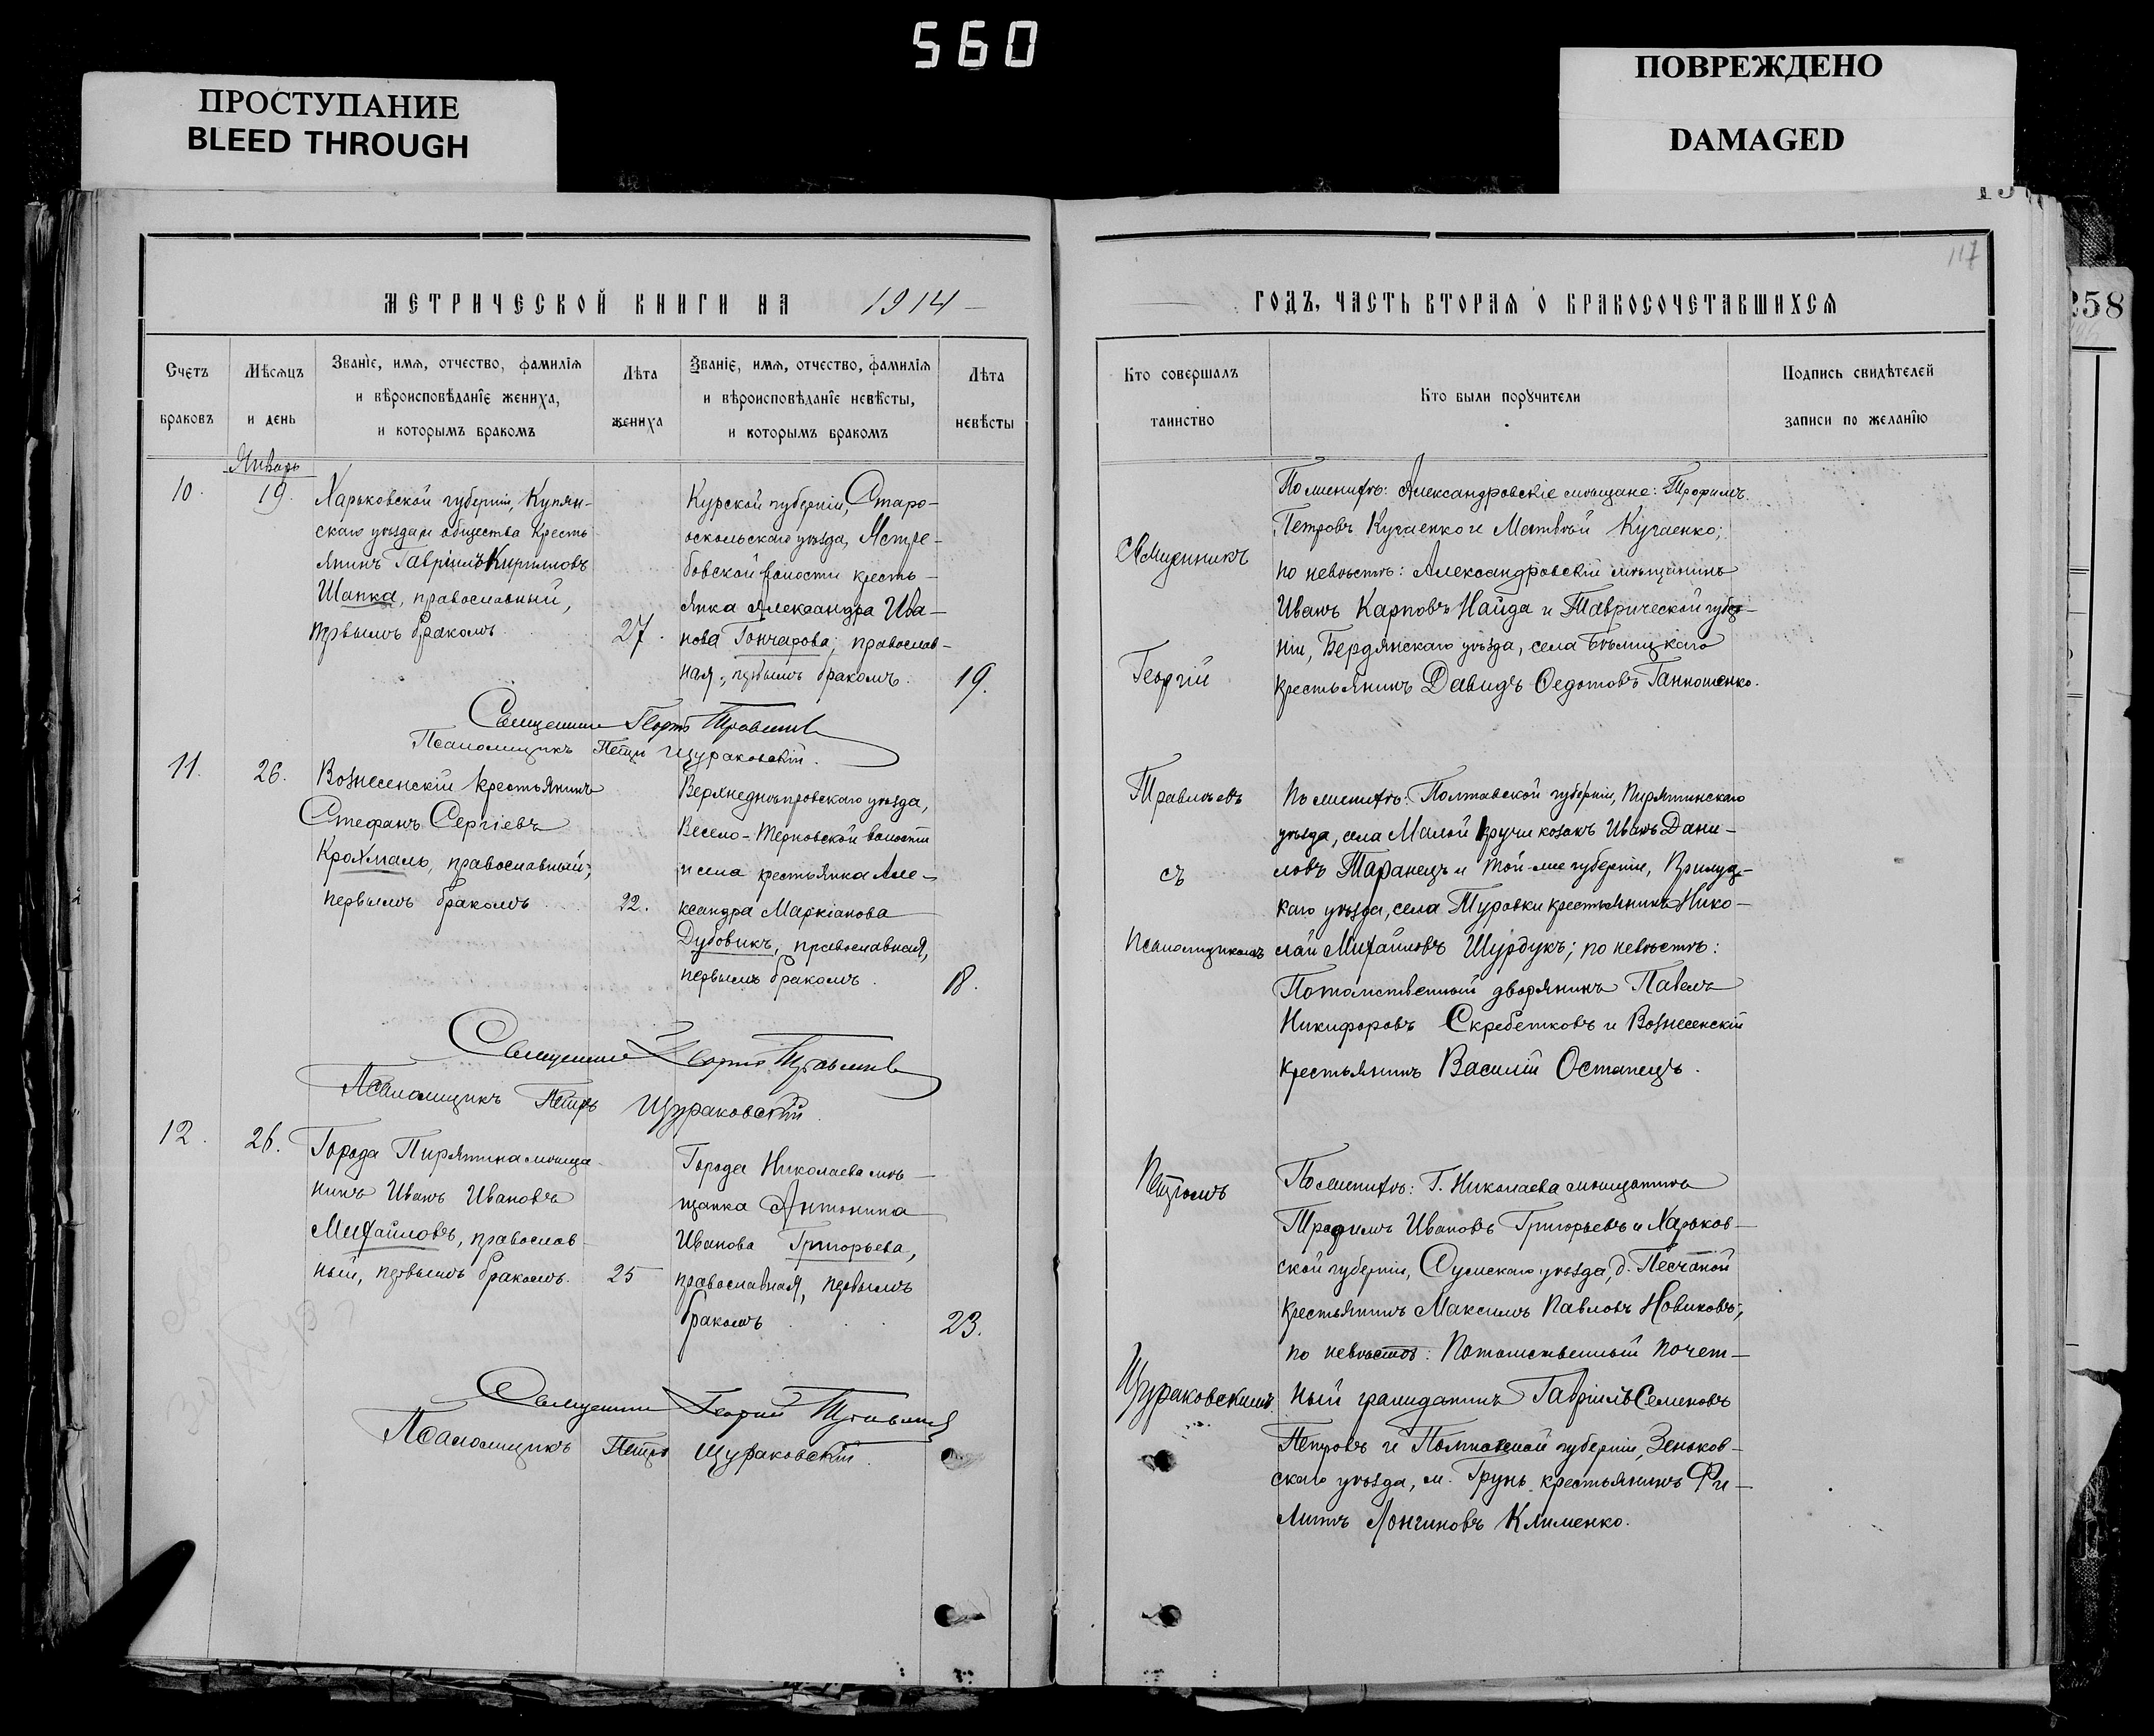 560
ПРОСТУПАНИЕ
BLEED THROUGH
ПОВРЕЖДЕНО
DAMAGED
117
258
МЕТРИЧЕСКОЙ КНИГИ НА 1914
Счетъ браковъ
Мѣсяцъ и день
Званіе, имя, отчество, фамилія
и вѣроисповѣданіе жениха,
и которымъ бракомъ
Лѣта жениха
Званіе, имя, отчество, фамилія
и вѣроисповѣданіе невѣсты,
и которымъ бракомъ
Лѣта невѣсты
Январь
10.
19.
Харьковской губерніи, Купян-
скаго уѣзда и общества кресть
янинъ Гавріилъ Кирилловъ
Шапка, православный,
первымъ бракомъ
27.
Курской губерніи, Старо-
оскольскаго уѣзда, Ястре-
бовской волости кресть-
янка Александра Ива-
нова Гончарова, православ-
ная, первымъ бракомъ.
19.
Священник Георгій Травлѣев
Псаломщикъ Петръ Щураковскій.
11.
26.
Вознесенскій крестьянинъ
Стефанъ Сергіевъ
Крохмаль, православный,
первымъ бракомъ
22.
Верхнеднѣпровскаго уѣзда,
Весело-Терновской волости
и села крестьянка Але-
ксандра Маркіанова
Дубовикъ, православная,
первымъ бракомъ.
18.
Священник Георгій Травлѣев
Псаломщикъ Петръ Щураковскій.
12.
26.
Города Пирятина мѣща-
нинъ Иванъ Ивановъ
Михайловъ, православ-
ный, первымъ бракомъ.
25
Города Николаева мѣ-
щанка Антонина
Иванова Григорьева,
православная, первымъ
бракомъ
23.
Священник Георгій Травлѣев
Псаломщикъ Петръ Щураковскій.
ГОДЪ, ЧАСТЬ ВТОРАЯ О БРАКОСОЧЕТАВШИХСЯ
Кто совершалъ
таинство
Кто были поручители
Подпись свидѣтелей
записи по желанію
Священникъ
Георгій
Травлѣевъ
съ
псаломщикомъ
Петромъ
Щураковскимъ.
По женихѣ: Александровскіе мѣщане: Трофимъ
Петровъ Кучаенко и Матвѣй Кучаенко;
по невѣстѣ: Александровскій мѣщанинъ
Иванъ Карповъ Найда и Таврической губер-
ніи, Бердянскаго уѣзда, села
крестьянинъ Давидъ Федотовъ
По женихѣ: Полтавской губерніи, Пирятинскаго
уѣзда, села Малой Кручи козакъ Иванъ Дани-
ловъ Таранецъ и той-же губерніи, Прилуц-
каго уѣзда, села Туровки крестьянинъ Нико-
лай Михайловъ Шурдукъ; по невѣстѣ:
Потомственный дворянинъ Павелъ
Никифоровъ Скребетковъ и Вознесенскій
крестьянинъ Василій Останецъ.
По женихѣ: Г. Николаева мѣщанинъ
Трофимъ Ивановъ Григорьевъ и Харьков-
ской губерніи, Сумскаго уѣзда, д. Песчаной
крестьянинъ Максимъ Павловъ Новиковъ;
по невѣстѣ: Потомственный почет-
ный гражданинъ Гавріилъ Семеновъ
Петровъ и Полтавской губерніи, Зеньков-
скаго уѣзда, м. Грунь крестьянинъ Фи-
липпъ Лонгиновъ Клименко.